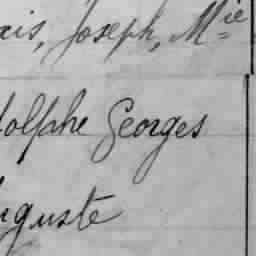 xis, Joseph, Mie
dolphe Georges
uguste